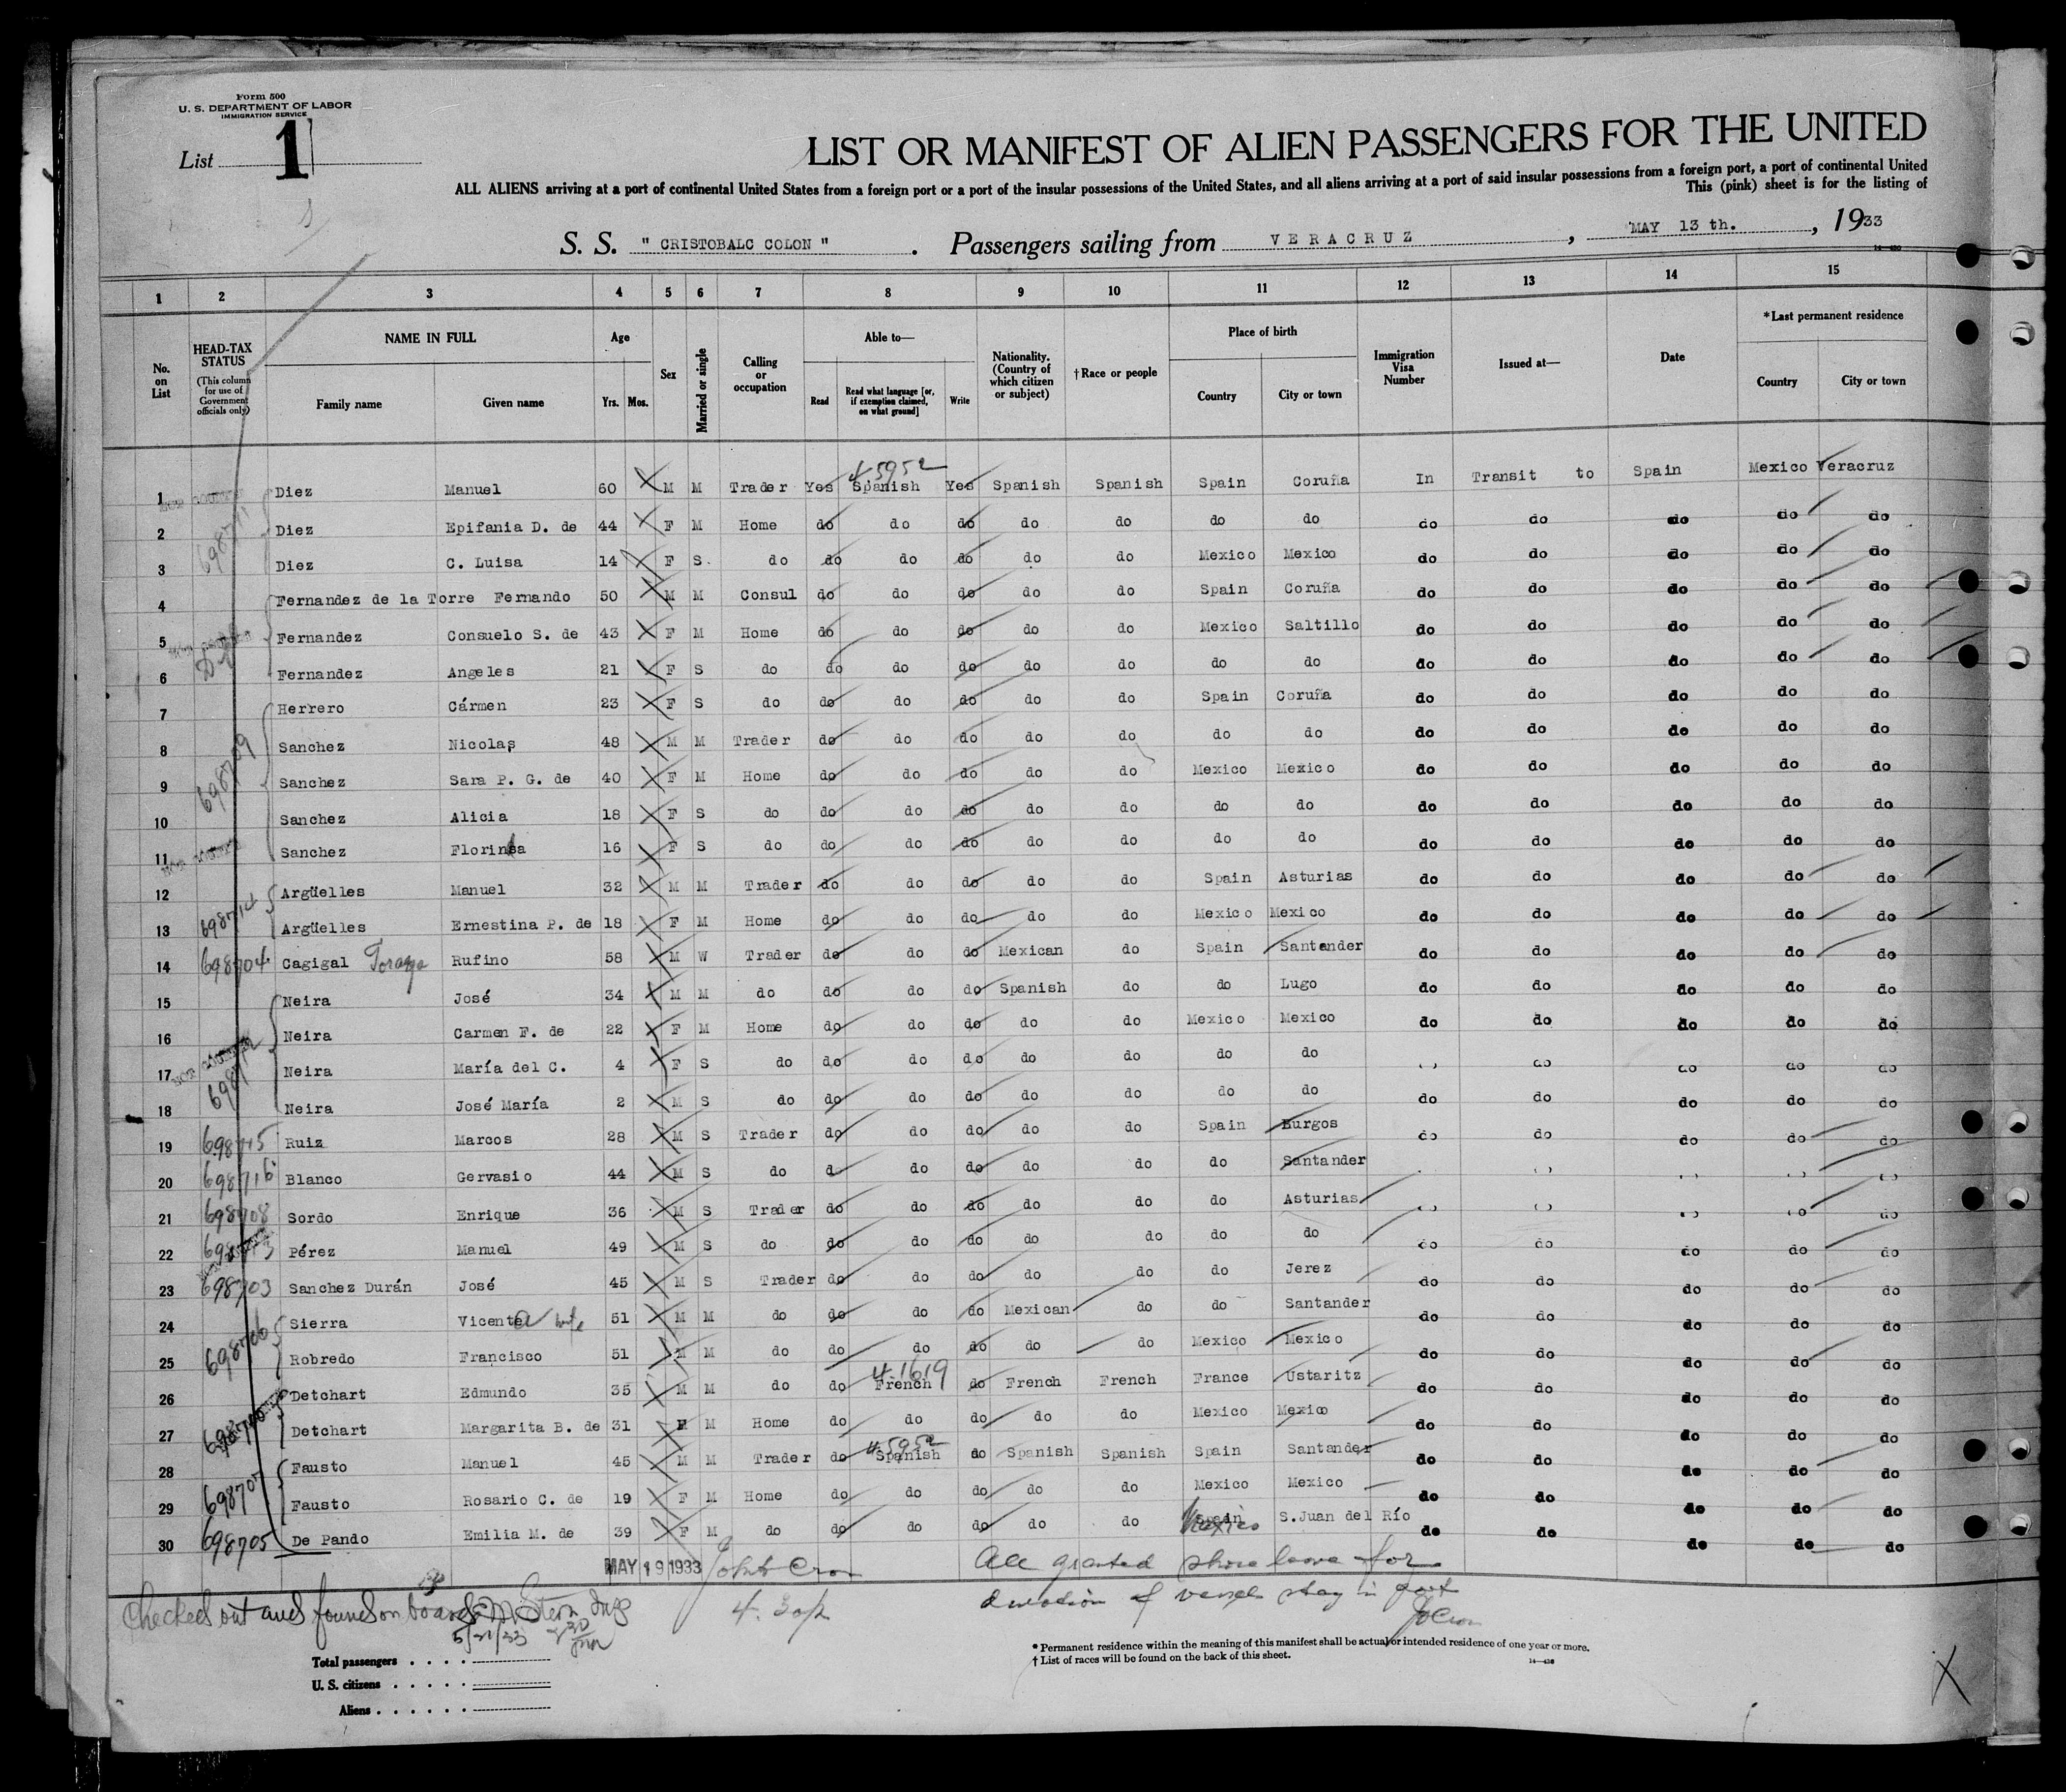 Form 500
U. S. DEPARTMENT OF LABOR
IMMIGRATION SERVICE
List 1
LIST OR MANIFEST OF ALIEN PASSENGERS FOR THE UNITED
ALL ALIENS arriving at a port of continental United States from a foreign port or a port of the insular possessions of the United States, and all aliens arriving at a port of said insular possessions from a foreign port, a port of continental United
This (pink) sheet is for the listing of
S. S. " CRISTOBALC COLON " . Passengers sailing from VERACRUZ , MAY 13 th. , 1933
1 2 3 4 5 6 7 8 9 10 11 12 13 14 15
No. on List
HEAD-TAX STATUS (This column for use of Government officials only)
NAME IN FULL
Family name Given name
Age
Yrs. Mos.
Sex
Married or single
Calling or occupation
Able to—
Read
Read what language [or, if exemption claimed, on what ground]
Write
Nationality. (Country of which citizen or subject)
†Race or people
Place of birth
Country City or town
Immigration Visa Number
Issued at—
Date
*Last permanent residence
Country City or town
45952
1 Diez Manuel 60 M M Trader Yes Spanish Yes Spanish Spanish Spain Coruña In Transit to Spain Mexico Veracruz
2 Diez Epifania D. de 44 F M Home do do do do do do do do do do do do
3 Diez C. Luisa 14 F S. do do do do do do Mexico Mexico do do do do do
4 Fernandez de la Torre Fernando 50 M M Consul do do do do do Spain Coruña do do do do do
5 Fernandez Consuelo S. de 43 F M Home do do do do do Mexico Saltillo do do do do do
6 Fernandez Angeles 21 F S do do do do do do do do do do do do do
7 Herrero Cármen 23 F S do do do do do do Spain Coruña do do do do do
8 698709 Sanchez Nicolas 48 M M Trader do do do do do do do do do do do do
9 Sanchez Sara P. G. de 40 F M Home do do do do do Mexico Mexico do do do do do
10 Sanchez Alicia 18 F S do do do do do do do do do do do do do
11 Sanchez Florinda 16 F S do do do do do do do do do do do do do
12 Argüelles Manuel 32 M M Trader do do do do do Spain Asturias do do do do do
13 698714 Argüelles Ernestina P. de 18 F M Home do do do do do Mexico Mexico do do do do do
14 698704 Cagigal Rufino 58 M W Trader do do do Mexican do Spain Santander do do do do do
15 Neira José 34 M M do do do do Spanish do do Lugo do do do do do
16 Neira Carmen F. de 22 F M Home do do do do do Mexico Mexico do do do do do
17 Neira María del C. 4 F S do do do do do do do do do do do do
18 Neira José María 2 M S do do do do do do do do do do do do do
19 698715 Ruiz Marcos 28 M S Trader do do do do do Spain Burgos do do do do do
20 698716 Blanco Gervasio 44 M S do d do do do do do Santander
21 698708 Sordo Enrique 36 M S Trader do do do do do do Asturias do
22 Pérez Manuel 49 M S do do do do do do do do do do do do do
23 698703 Sanchez Durán José 45 M S Trader do do do do do do Jerez do do do do do
24 Sierra Vicente 51 M M do do do do Mexican do do Santander do do do do do
25 698706 Robredo Francisco 51 M M do do do do do do Mexico Mexico do do do do do
41619
26 Detchart Edmundo 35 M M do do French do French French France Ustaritz do do do do do
27 Detchart Margarita B. de 31 F M Home do do do do do Mexico Mexico do do do do do
45952
28 Fausto Manuel 45 M M Trader do Spanish do Spanish Spanish Spain Santander do do do do do
29 Fausto Rosario C. de 19 F M Home do do do do do Mexico Mexico do do do do do
30 698705 De Pando Emilia M. de 39 F M do do do do do do Spain Mexico S.Juan del Río do do do do do
MAY 19 1933 All granted shore leave for
Checked out and found on board Stern Insp 4.30p duration of vessels stay in port
5/21/33
Total passengers . . . .
U. S. citizens . . . . .
Aliens . . . . . .
* Permanent residence within the meaning of this manifest shall be actual or intended residence of one year or more.
† List of races will be found on the back of this sheet.